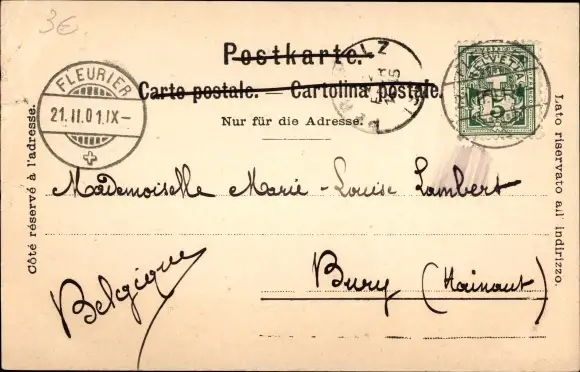 3€
Postkarte.
Carte postale. — Cartolina postale.
Nur für die Adresse.
FLEURIER
21.II.01.IX-
HELVETIA
5
Côté réservé à l'adresse.
Lato riservato all' indirizzo.
Mademoiselle Marie-Louise Lambert
Bury (Hainaut)
Belgique